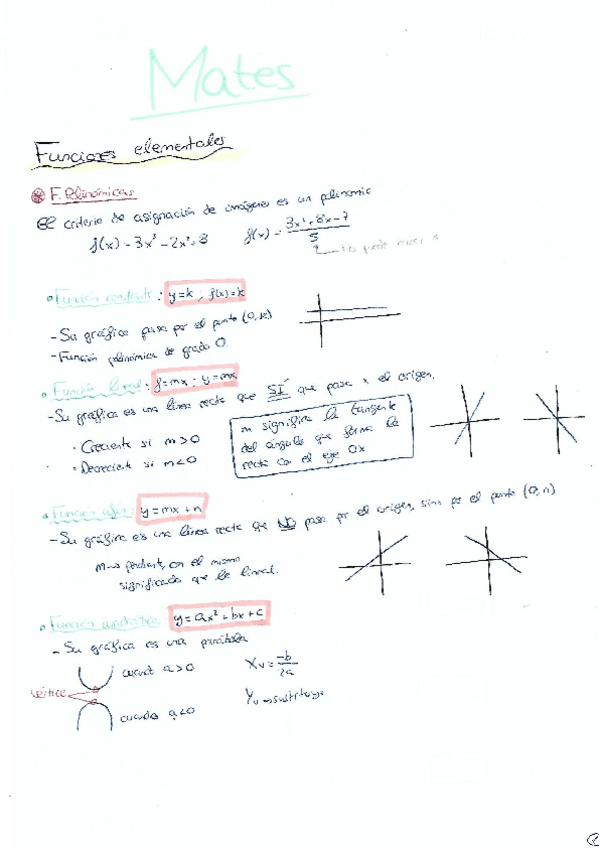 Mates
Funciones elementales
F. Polinómicas
El criterio de asignación de imágenes es un polinomio
f(x) = 3x³ - 2x² + 8 f(x) = 3x² + 8x - 7 / 5
No puede haber x
Función constante: y = k ; f(x) = k
- Su gráfica pasa por el punto (0, k)
- Función polinómica de grado 0.
Función lineal: f = mx ; y = mx
- Su gráfica es una línea recta que SÍ que pasa x el origen.
· Creciente si m > 0
· Decreciente si m < 0
m significa la tangente
del ángulo que forma la
recta con el eje Ox
Función afín: y = mx + n
- Su gráfica es una línea recta que NO pasa por el origen, sino por el punto (0, n)
m → pendiente, con el mismo
significado que la lineal.
Función cuadrática: y = ax² + bx + c
- Su gráfica es una parábola
cuando a > 0
Xv = -b / 2a
vértice
cuando a < 0
Yv → sustituye